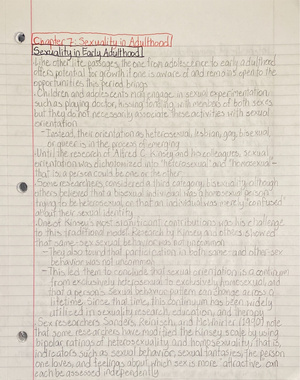 Chapter 7: Sexuality in Adulthood
Sexuality in Early Adulthood
Like other life passages, the one from adolescence to early adulthood
offers potential for growth if one is aware of and remains open to the
opportunities this period brings
Children and adolescents often engage in sexual experimentation,
such as playing doctor, kissing, fondling, with members of both sexes
but they do not necessarily associate these activities with sexual
orientation
-Instead, their orientation as heterosexual, lesbian, gay, bisexual
or queer is in the process of emerging
Until the research of Alfred C. Kinsey and his colleagues, sexual
orientation was dichotomized into "heterosexual" and "homosexual" -
that is a person could be one or the other
-Some researchers considered a third category, bisexuality although
others believed that a bisexual individual was a homosexual person
trying to be heterosexual or that an individual was merely "confused"
about their sexual identity
One of Kinsey's most significant contributions was his challenge
to this traditional model. Research by Kinsey and others showed
that same-sex sexual behavior was not uncommon
-They also found that participating in both same and other-sex
behavior was not uncommon
-This led them to conclude that sexual orientation is a continuum
from exclusively heterosexual to exclusively homosexual and
that a person's sexual behavior pattern can change across a
lifetime. Since that time, this continuum has been widely
utilized in sexuality research, education, and therapy
Sex researchers Sanders, Reinisch, and McWhirter (1990) note
that some researchers have modified the Kinsey scale by using
bipolar ratings of heterosexuality and homosexuality, that is,
indicators such as sexual behavior, sexual fantasies, the person
one loves, and feelings about which sex is more "attractive" can
each be assessed independently